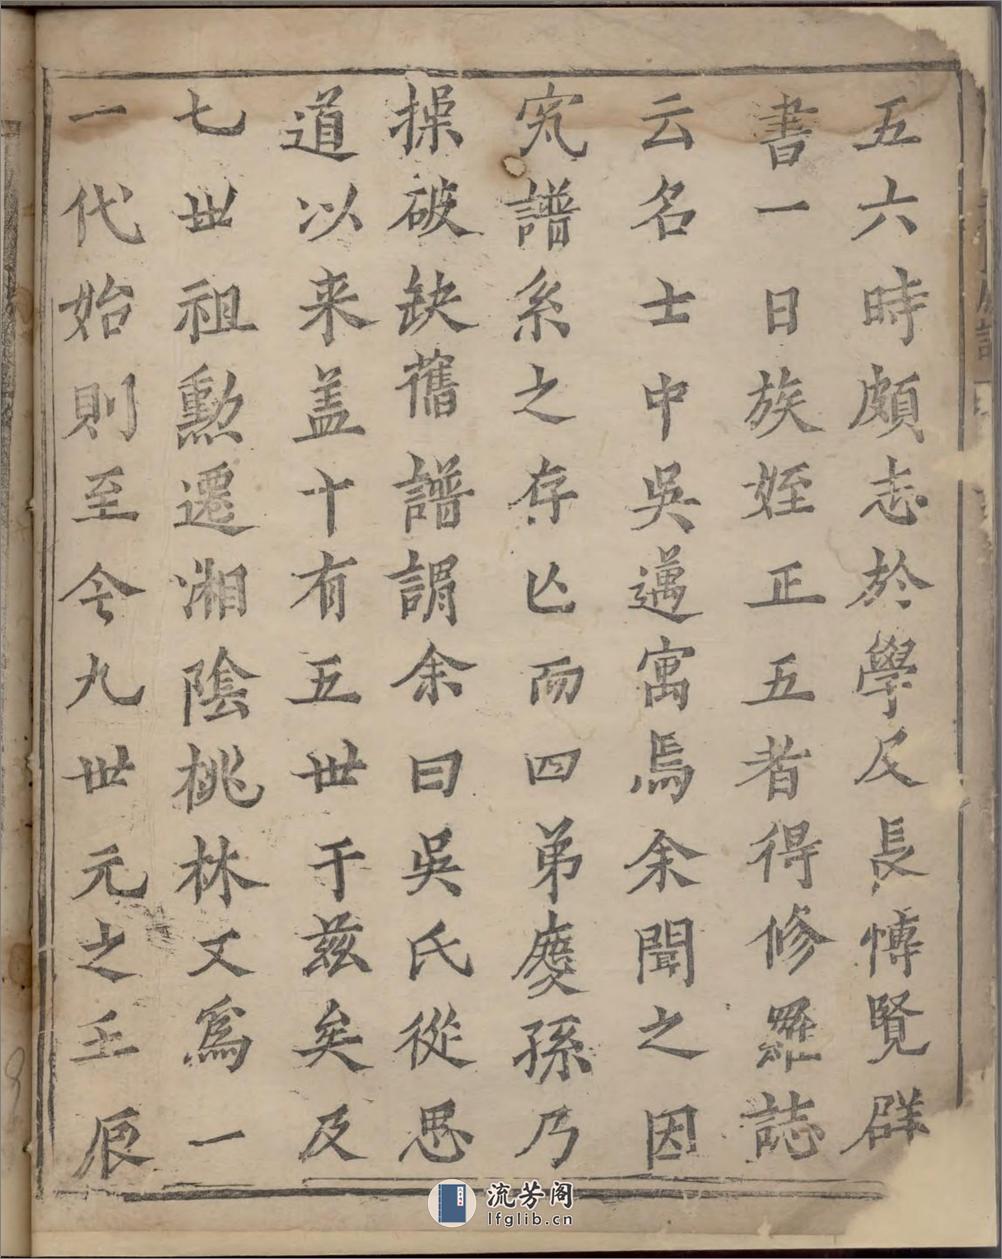 五六時頗志於學及長愽覽群
書一日族姪正五者得修羅誌
云名士中吳邁寓焉余聞之因
究譜系之存亾而四弟慶孫乃
操破缺舊譜謂余曰吳氏從思
道以来盖十有五世于兹矣及
七世祖勲遷湘陰桃林又為一
一代始則至今九世元之壬辰
流芳阁
lfglib.cn